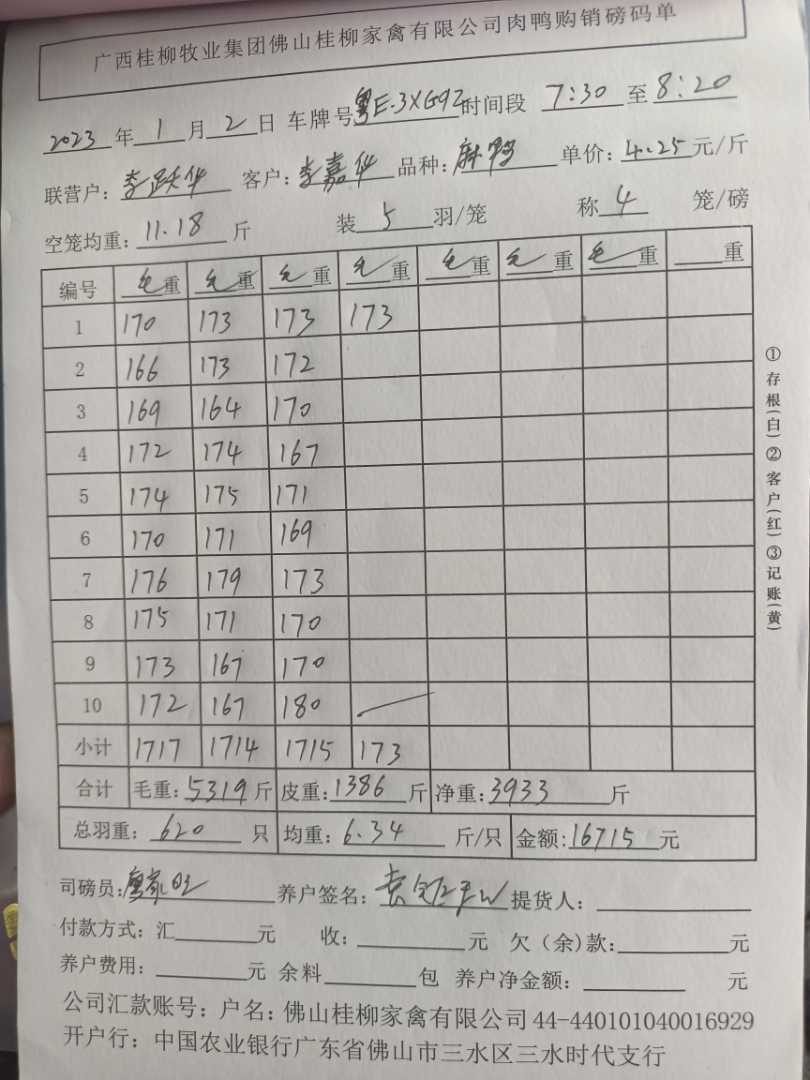 广西桂柳牧业集团佛山桂柳家禽有限公司肉鸭购销磅码单
2023 年 1 月 2 日 车牌号 粤E.3XG9Z 时间段 7:30 至 8:20
联营户: 李跃华 客户: 李嘉华 品种: 麻鸭 单价: 4.25 元/斤
空笼均重: 11.18 斤 装 5 羽/笼 称 4 笼/磅
编号 毛重 毛重 毛重 毛重 毛重 毛重 毛重 重
1 170 173 173 173
2 166 173 172
3 169 164 170
4 172 174 167
5 174 175 171
6 170 171 169
7 176 179 173
8 175 171 170
9 173 167 170
10 172 167 180
小计 1717 1714 1715 173
合计 毛重: 5319 斤 皮重: 1386 斤 净重: 3933 斤
总羽重: 620 只 均重: 6.34 斤/只 金额: 16715 元
司磅员: 养户签名: 提货人:
付款方式: 汇 元 收: 元 欠(余)款: 元
养户费用: 元 余料 包 养户净金额: 元
公司汇款账号: 户名: 佛山桂柳家禽有限公司 44-440101040016929
开户行: 中国农业银行广东省佛山市三水区三水时代支行
①存根(白)②客户(红)③记账(黄)